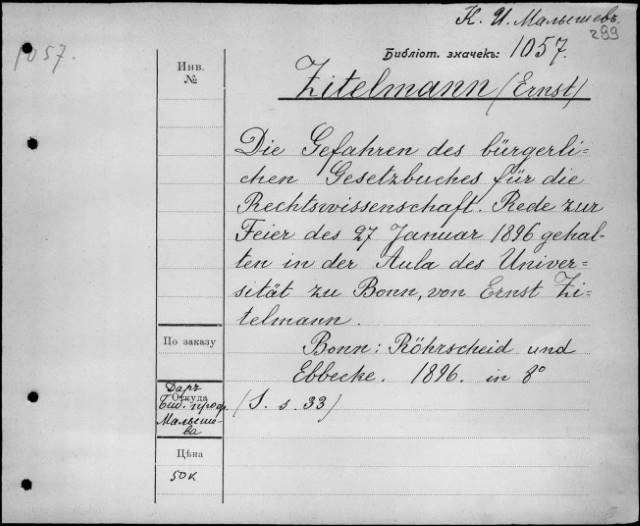 К. И. Малышевъ.
299
1057.
Библіот. значекъ: 1057.
Инв.
№
Zitelmann (Ernst)
Die Gefahren des bürgerli=
chen Gesetzbuches für die
Rechtswissenschaft. Rede zur
Feier des 27 Januar 1896 gehal-
ten in der Aula des Univer=
sität zu Bonn, von Ernst Zi-
telmann.
По заказу
Bonn: Röhrscheid und
Ebbecke. 1896. in 8°
Даръ
Откуда
Биб. проф.
Малыше-
ва
(S. s. 33)
Цѣна
50 к